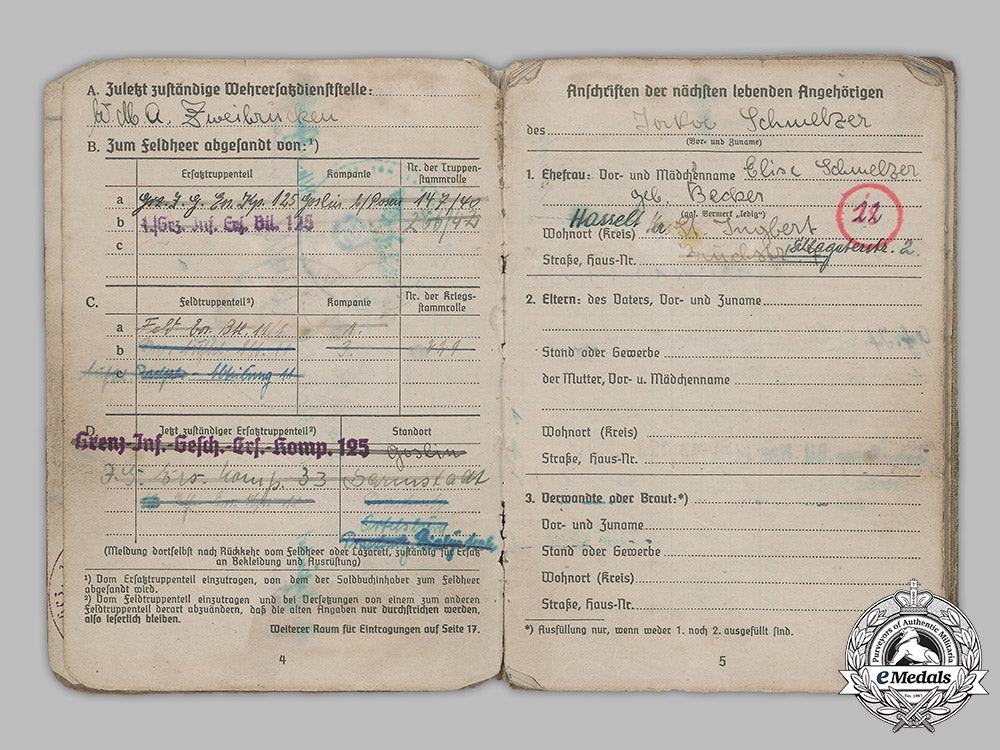 A. Zuletzt zuständige Wehrersatzdienststelle:
W.M.A. Zweibrücken
B. Zum Feldheer abgesandt von:¹)
Ersatztruppenteil Kompanie Nr. der Truppenstammrolle
a 125 Goslin b/Posen 147/40
b 1./Grz. Inf. Ers. Btl. 125
c
C. Feldtruppenteil²) Kompanie Nr. der Kriegsstammrolle
a Feld 1.
b 3.
c Abteilung 11
D. Jetzt zuständiger Ersatztruppenteil²) Standort
Grenz-Inf.-Gesch.-Ers.-Komp. 125 Goslin
Komp. 33 Darmstadt
(Meldung dortselbst nach Rückkehr vom Feldheer oder Lazarett, zuständig für Ersatz
an Bekleidung und Ausrüstung)
¹) Vom Ersatztruppenteil einzutragen, von dem der Soldbuchinhaber zum Feldheer
abgesandt wird.
²) Vom Feldtruppenteil einzutragen und bei Versetzungen von einem zum anderen
Feldtruppenteil derart abzuändern, daß die alten Angaben nur durchstrichen werden,
also leserlich bleiben.
Weiterer Raum für Eintragungen auf Seite 17.
4
Anschriften der nächsten lebenden Angehörigen
des Schmelzer
(Vor- und Zuname)
1. Ehefrau: Vor- und Mädchenname Elise Schmelzer
geb. Becker
(ggf. Vermerk "ledig")
22
Wohnort (Kreis) Hassel St. Ingbert
Straße, Haus-Nr. Schlageterstr. 2.
2. Eltern: des Vaters, Vor- und Zuname
Stand oder Gewerbe
der Mutter, Vor- u. Mädchenname
Wohnort (Kreis)
Straße, Haus-Nr.
3. Verwandte oder Braut:*)
Vor- und Zuname
Stand oder Gewerbe
Wohnort (Kreis)
Straße, Haus-Nr.
*) Ausfüllung nur, wenn weder 1. noch 2. ausgefüllt sind.
5
Purveyors of Authentic Militaria
eMedals